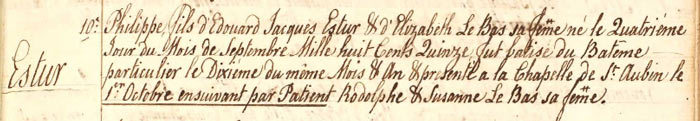 19:
Philippe, fils d'Edouard Jacques Estur & d'Elizabeth Le Bas sa feme né le Quatriéme
Jour du Mois de Septembre Mille huit Cents Quinze, fut batisé du Batême
Estur
particulier le Dixiéme du même Mois & An & presenté a la Chapelle de St. Aubin le
1er Octobre ensuivant par Patient Rodolphe & Susanne Le Bas sa feme.